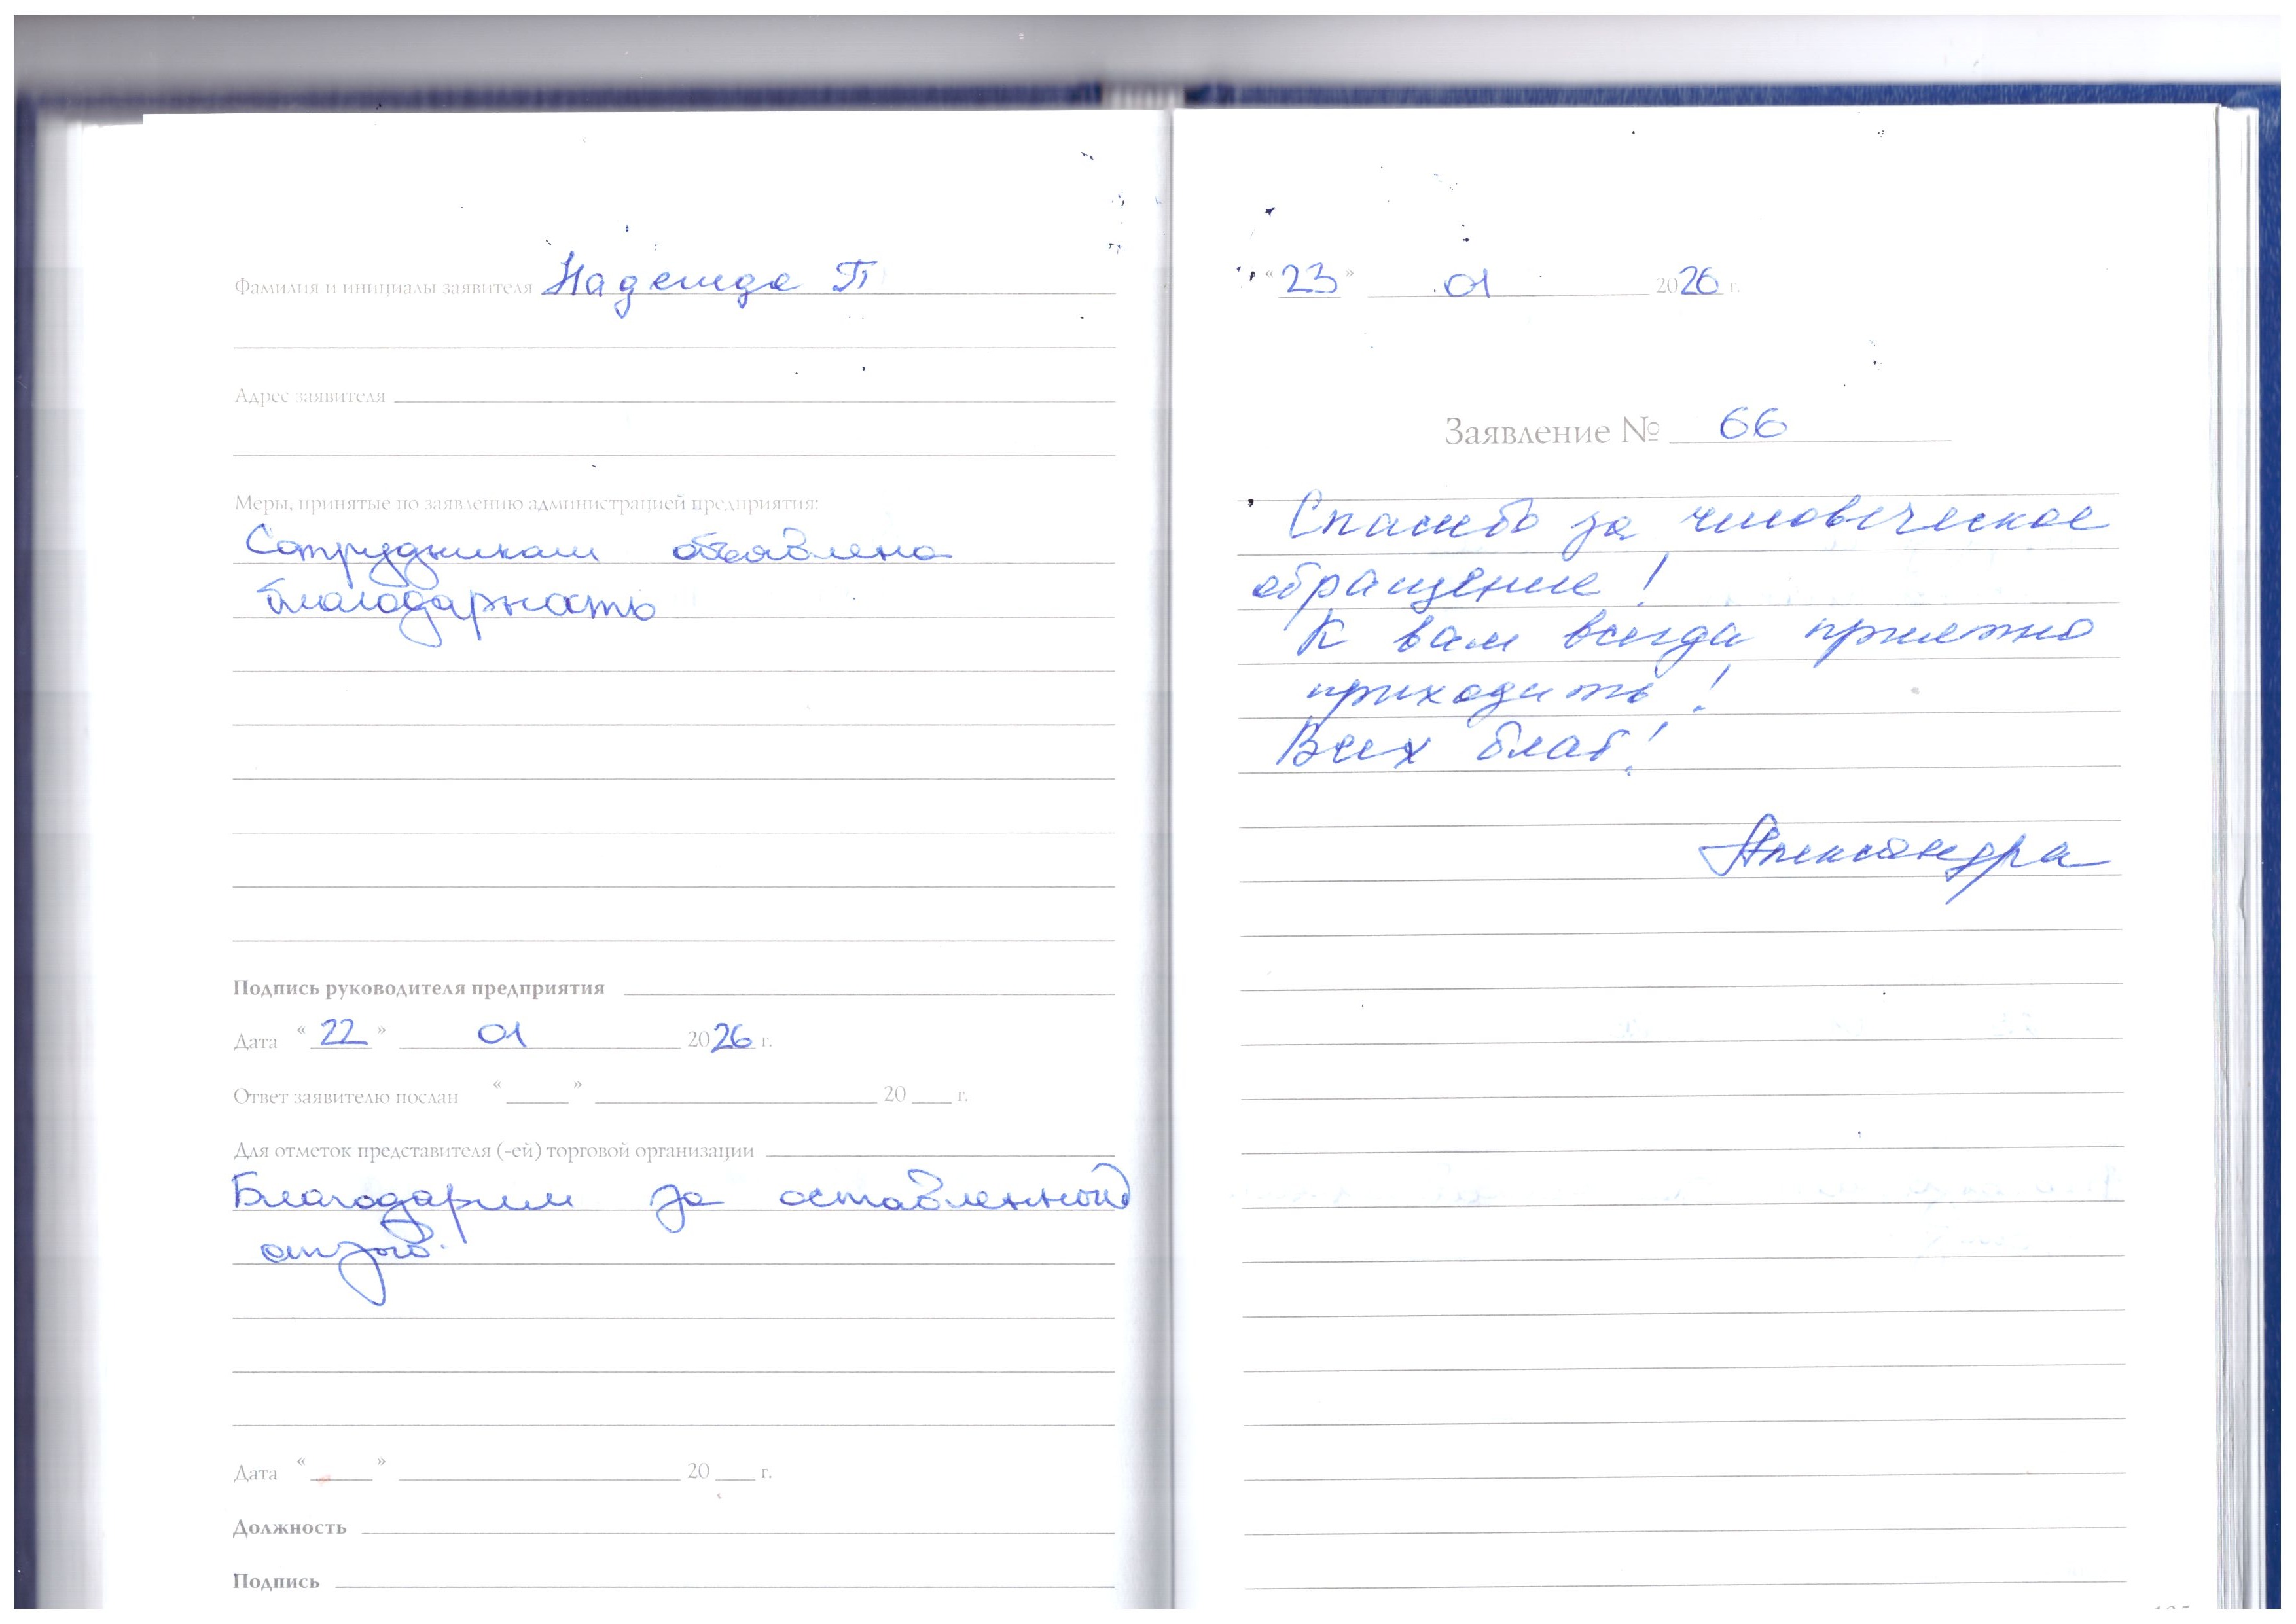 Фамилия и инициалы заявителя Надежда П
Адрес заявителя
Меры, принятые по заявлению администрацией предприятия:
Сотрудникам объявлена
благодарность
Подпись руководителя предприятия
Дата "22" 01 2026 г.
Ответ заявителю послан " " 20 г.
Для отметок представителя (-ей) торговой организации
Благодарим за оставленный
отзыв.
Дата " " 20 г.
Должность
Подпись
"23" 01 2026 г.
Заявление № 66
Спасибо за человеческое
обращение!
К вам всегда приятно
приходить!
Всех благ!
Александра